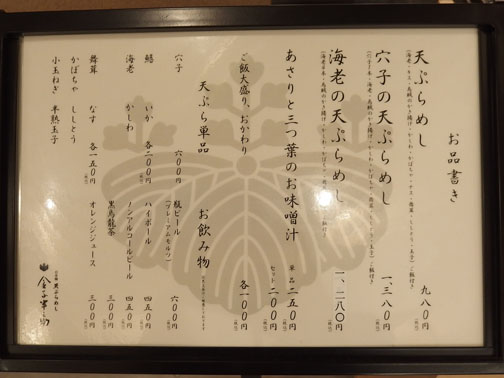 お品書き
天ぷらめし 九八〇円
穴子の天ぷらめし 一、三八〇円
海老の天ぷらめし 一、二八〇円
あさりと三つ葉のお味噌汁
単品 二五〇円
セット 二〇〇円
ご飯大盛り、おかわり 各一〇〇円
天ぷら単品
穴子 六〇〇円
鱚 いか
海老 かしわ 各二〇〇円
舞茸 なす
かぼちゃ ししとう 各一五〇円
小玉ねぎ 半熟玉子
お飲み物
瓶ビール
(プレミアムモルツ) 六〇〇円
ハイボール 四五〇円
ノンアルコールビール 四五〇円
黒烏龍茶 三〇〇円
オレンジジュース 三〇〇円
天ぷらめし